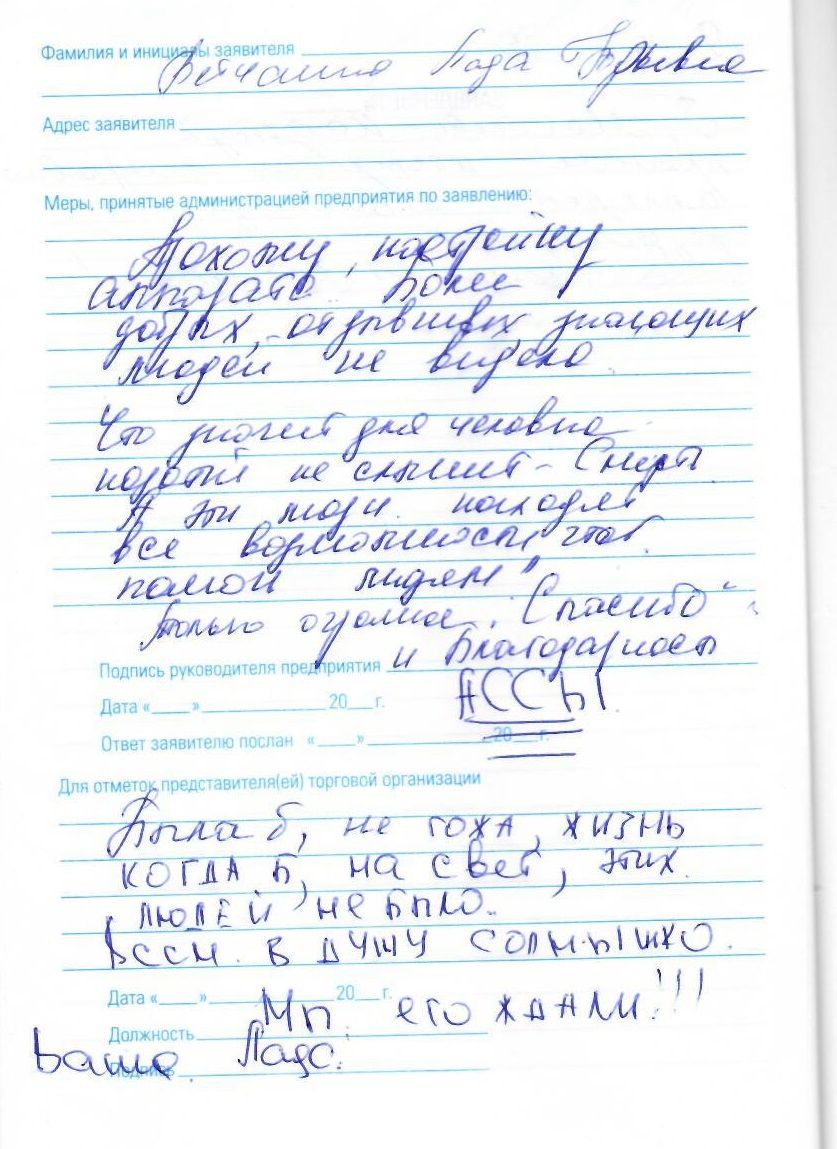 Фамилия и инициалы заявителя
Лада
Адрес заявителя
Меры, принятые администрацией предприятия по заявлению:
Прохожу, настройку
аппарата. Более
добрых, отзывчивых, знающих
людей не видела.
Что значит для человека
который не слышит - Смерть.
А эти люди находят
все возможности, чтоб
помочь людям"
Только огромное "Спасибо"
Подпись руководителя предприятия и Благодарность
Дата «___» ______ 20__ г. АССЫ.
Ответ заявителю послан «___» ______ 20__ г.
Для отметок представителя(ей) торговой организации
Была б, не гожа, жизнь
КОГДА Б, на свет, этих
ЛЮДЕЙ не было.
Всем в душу солнышко.
Дата «___» ______ 20__ г.
Мы его ждали!!!
Должность
Ваша Лада.
Подпись